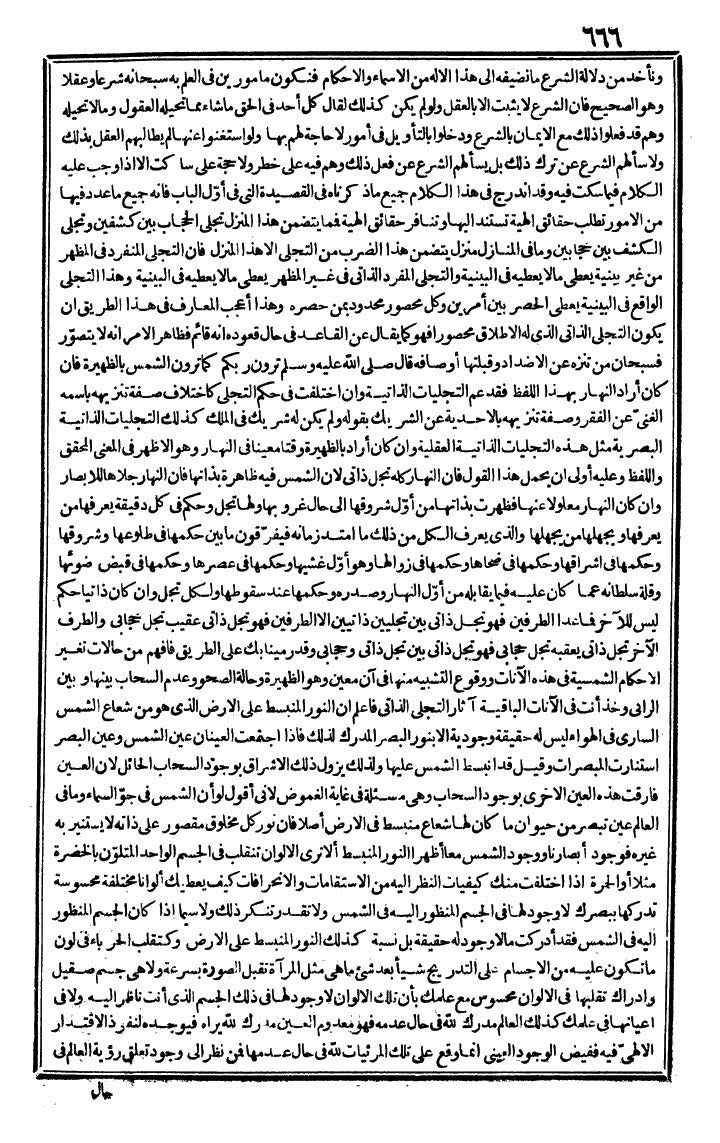 ٦٦٦
ونأخذ من دلالة الشرع ما نضيفه الى هذا الاله من الاسماء والاحكام فنكون مامورين فى العلم به سبحانه شرعا وعقلا
وهو الصحيح فان الشرع لا يثبت الا بالعقل ولو لم يكن كذلك لقال كل أحد فى الحق ما شاء مما تحيله العقول وما لا تحيله
وهم قد فعلوا ذلك مع الايمان بالشرع ودخلوا بالتأويل فى أمور لا حاجة لهم بها ولو استغنوا عنها لم يطالبهم العقل بذلك
ولا سألهم الشرع عن ترك ذلك بل يسألهم الشرع عن فعل ذلك وهم فيه على خطر ولا حجة على ساكت الا اذا وجب عليه
الكلام فيما سكت فيه وقد اندرج فى هذا الكلام جميع ماذكرناه فى القصيدة التى فى أوّل الباب فانه جميع ما عدد فيها
من الامور تطلب حقائق الهية تستند اليها وتنافر حقائق الهية فمما يتضمن هذا المنزل تجلى الحجاب بين كشفين وتجلى
الكشف بين حجابين وما فى المنازل منزل يتضمن هذا الضرب من التجلى الا هذا المنزل فان التجلى المنفرد فى المظهر
من غير بينية يعطى مالا يعطيه فى البينية والتجلى المفرد الذاتى فى غير المظهر يعطى مالا يعطيه فى البينية وهذا التجلى
الواقع فى البينية يعطى الحصر بين أمرين وكل محصور محدود بمن حصره وهذا أعجب المعارف فى هذا الطريق ان
يكون التجلى الذاتى الذى له الاطلاق محصورا فهو كما يقال عن القاعد فى حال قعوده انه قائم فظاهر الامر انه لا يتصوّر
فسبحان من تنزه عن الاضداد وقبلتها أوصافه قال صلى الله عليه وسلم ترون ربكم كما ترون الشمس بالظهيرة فان
كان أراد النهار بهذا اللفظ فقد عم التجليات الذاتية وان اختلفت فى حكم التجلى كاختلاف صفة تنزيهه باسمه
الغنىّ عن الفقر وصفة تنزيهه بالاحدية عن الشريك بقوله ولم يكن له شريك فى الملك كذلك التجليات الذاتية
البصرية مثل هذه التجليات الذاتية العقلية وان كان أراد بالظهيرة وقتا معينا فى النهار وهو الاظهر فى المعنى المحقق
واللفظ وعليه أولى ان يحمل هذا القول فان النهار كله تجل ذاتى لان الشمس فيه ظاهرة بذاتها فان النهار جلاها للابصار
وان كان النهار معلولا عنها فظهرت بذاتها من أوّل شروقها الى حال غروبها ولها تجل وحكم فى كل دقيقة يعرفها من
يعرفها ويجهلها من يجهلها والذى يعرف الكل من ذلك ما امتد زمانه فيفرّقون ما بين حكمها فى طلوعها وشروقها
وحكمها فى اشراقها وحكمها فى ضحاها وحكمها فى زوالها وهو أوّل غشيها وحكمها فى عصرها وحكمها فى قبض ضوئها
وقلة سلطانه عما كان عليه فيما يقابله من أوّل النهار وصدره وحكمها عند سقوطها ولكل تجل وان كان ذاتيا حكم
ليس للآخر فما عدا الطرفين فهو تجل ذاتى بين تجليين ذاتيين الا الطرفين فهو تجل ذاتى عقيب تجل حجابى والطرف
الآخر تجل ذاتى يعقبه تجل حجابى فهو تجل ذاتى بين تجل ذاتى وحجابى وقد رمينا بك على الطريق فافهم من حالات تغيير
الاحكام الشمسية فى هذه الآنات ووقوع التشبيه منها فى آن معين وهو الظهيرة وحالة الصحو وعدم السحاب بينها وبين
الرائى وخذ أنت فى الآنات الباقية آثار التجلى الذاتى فاعلم ان النور المنبسط على الارض الذى هو من شعاع الشمس
السارى فى الهواء ليس له حقيقة وجودية الا بنور البصر المدرك لذلك فاذا اجتمعت العينان عين الشمس وعين البصر
استنارت المبصرات وقيل قد انبسط الشمس عليها ولذلك يزول ذلك الاشراق بوجود السحاب الحائل لان العين
فارقت هذه العين الاخرى بوجود السحاب وهى مسئلة فى غاية الغموض لانى أقول لو أن الشمس فى جوّ السماء وما فى
العالم عين تبصر من حيوان ما كان لها شعاع منبسط فى الارض أصلا فان نور كل مخلوق مقصور على ذاته لا يستنير به
غيره فوجود أبصارنا ووجود الشمس معا أظهرا النور المنبسط ألا ترى الالوان تنقلب فى الجسم الواحد المتلوّن بالخضرة
مثلا أو الحمرة اذا اختلفت منك كيفيات النظر اليه من الاستقامات والانحرافات كيف يعطيك ألوانا مختلفة محسوسة
تدركها ببصرك لا وجود لها فى الجسم المنظور اليه فى الشمس ولا تقدر تنكر ذلك ولا سيما اذا كان الجسم المنظور
اليه فى الشمس فقد أدركت مالا وجود له حقيقة بل نسبة كذلك النور المنبسط على الارض وكتقلب الحرباء فى لون
ما تكون عليه من الاجسام على التدريج شيأ بعد شئ ما هى مثل المرآة تقبل الصورة بسرعة ولا هى جسم صقيل
وادراك تقلبها فى الالوان محسوس مع علمك بأن تلك الالوان لا وجود لها فى ذلك الجسم الذى أنت ناظر اليه ولا فى
اعيانها فى علمك كذلك العالم مدرك لله فى حال عدمه فهو معدوم العين مدرك لله يراه فيوجده لنفوذ الاقتدار
الالهىّ فيه ففيض الوجود العينى انما وقع على تلك المرئيات لله فى حال عدمها فمن نظر الى وجود تعلق رؤية العالم فى
حال